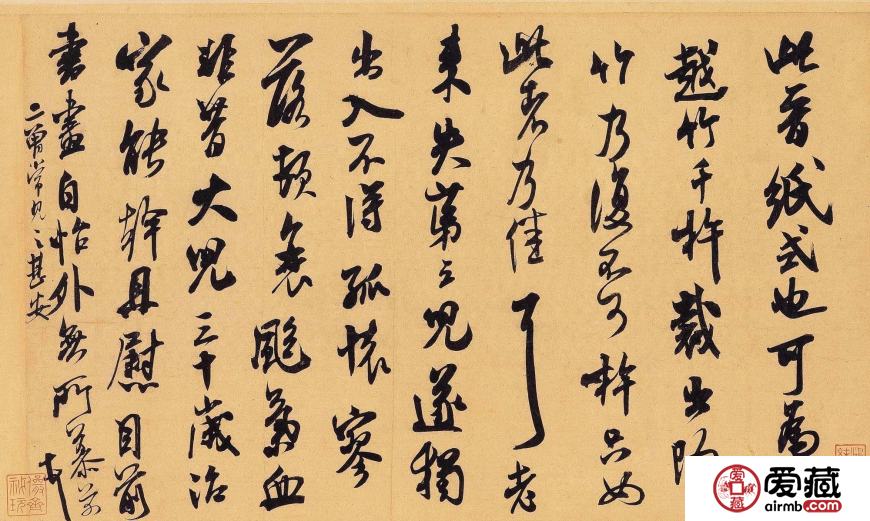 此晉紙式也可為
越竹千杵裁出陶
竹乃復不可杵只如
此者乃佳耳老
來失第三兒遂獨
出入不得孤懷寥
落頓衰颯氣血
非昔大兒三十歲治
家能幹且慰目前
書畫自怡外無所慕芾
二曾常見之甚安
爱藏
airmb.com